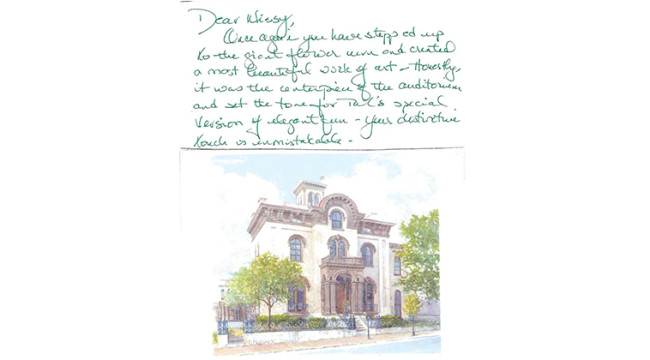 Dear
Once again you have stepped up
to the giant flower urn and created
a most beautiful work of art – Honestly,
it was the centerpiece of the auditorium
and set the tone for special
version of elegant fun – Your distinctive
touch is unmistakable –